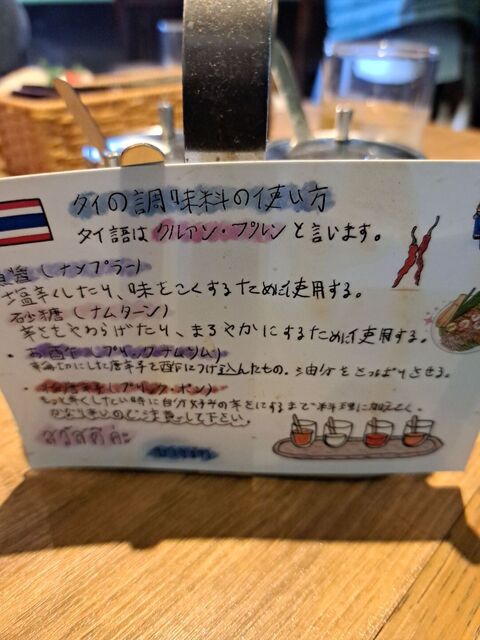 タイの調味料の使い方
タイ語はクルアン・プルンと言います。
魚醤(ナンプラー)
塩辛くしたり、味をこくするために使用する。
砂糖(ナムターン)
辛さをやわらげたり、まろやかにするために使用する。
・お酢(プリックナムソム)
輪切にした唐辛子を酢につけ込んだもの。油分をさっぱりさせる。
・粉唐辛子(プリック・ポン)
もっと辛くしたい時に自分好みの辛さにするまで料理に加えていく。
かなり辛いのでご注意して下さい。